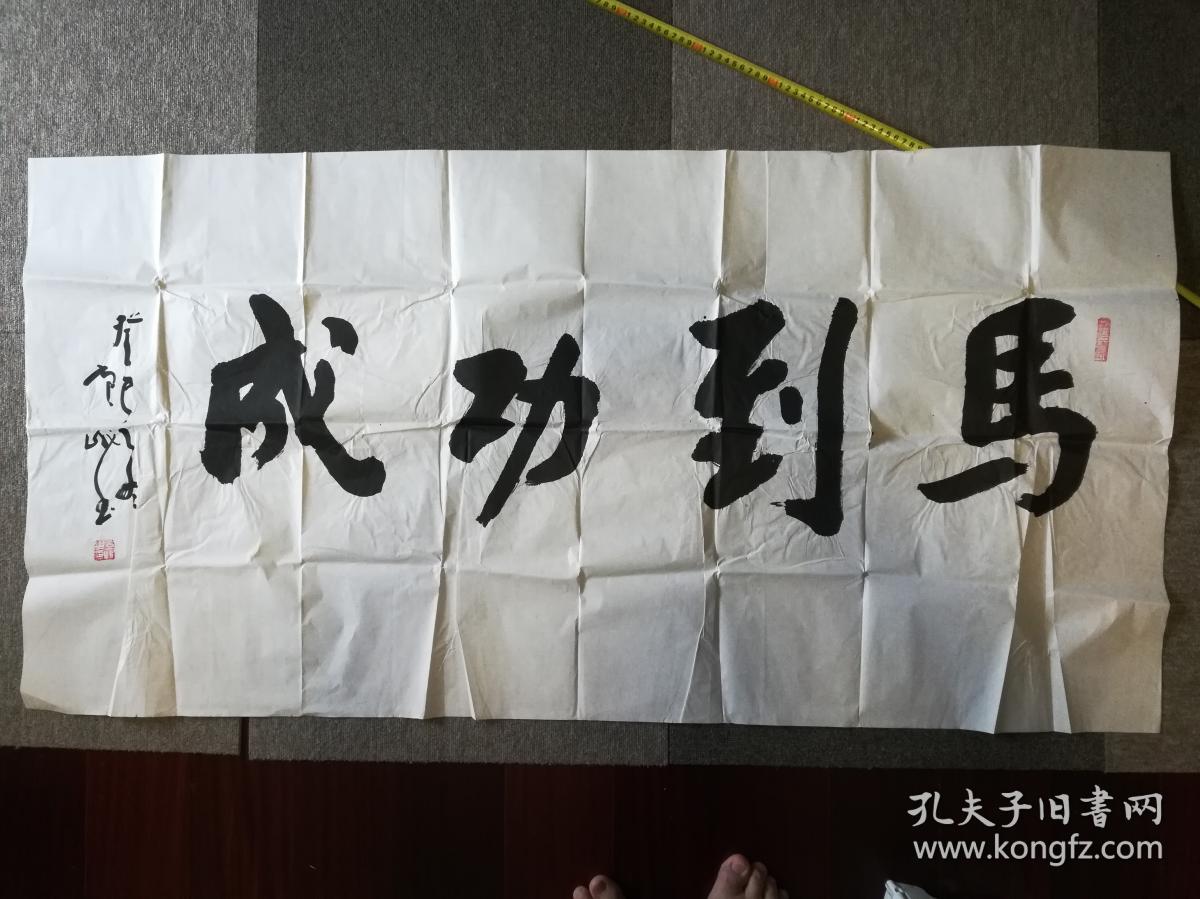 馬到功成
癸巳
孔夫子旧書网
www.kongfz.com